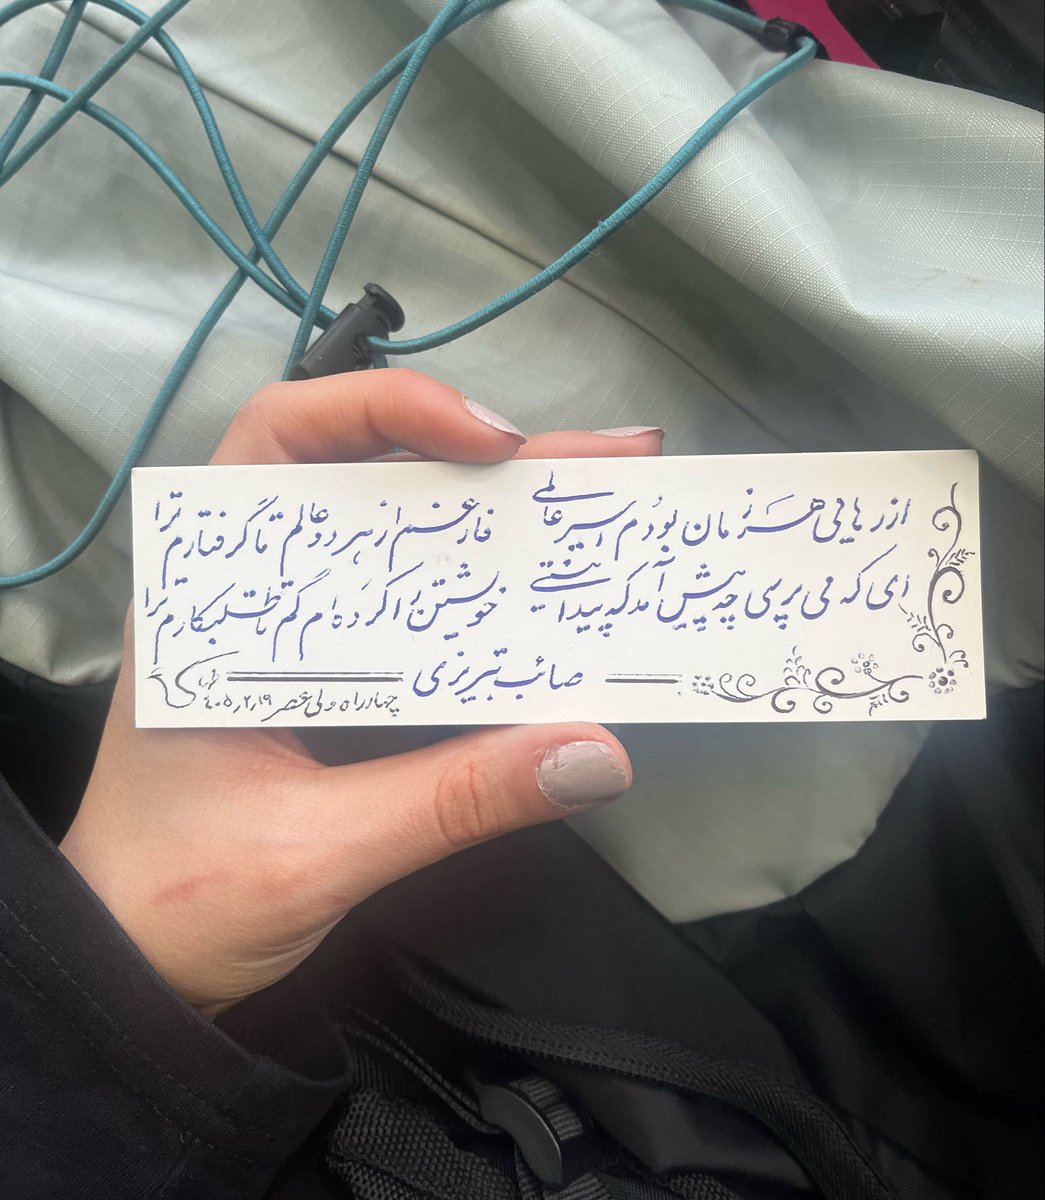 از رهایی هر زمان بودم اسیر عالمی فارغم از هر دو عالم تا گرفتارم ترا
ای که می پرسی چه پیش آمد که پیدا نیستی خویشتن را کرده ام گم تا طلبکارم ترا
صائب تبریزی
چهارراه ولی عصر ۴۰۵٫۲٫۱۹